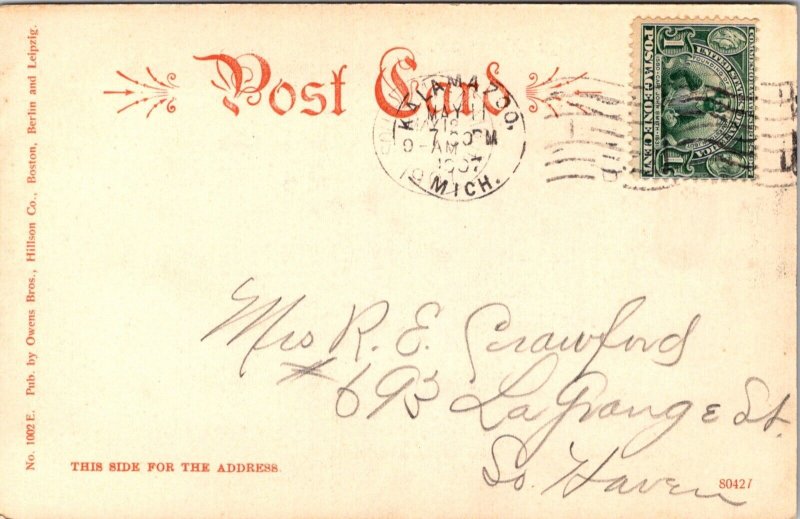 Post Card
KALAMAZOO,
MAY 11
7
AM
1907
MICH.
UNITED STATES OF AMERICA
1 POSTAGE ONE CENT 1
Mrs R. E. Crawford
#693 LaGrange St.
So. Haven
THIS SIDE FOR THE ADDRESS.
80427
No. 1002 E. Pub. by Owens Bros., Hillson Co., Boston, Berlin and Leipzig.